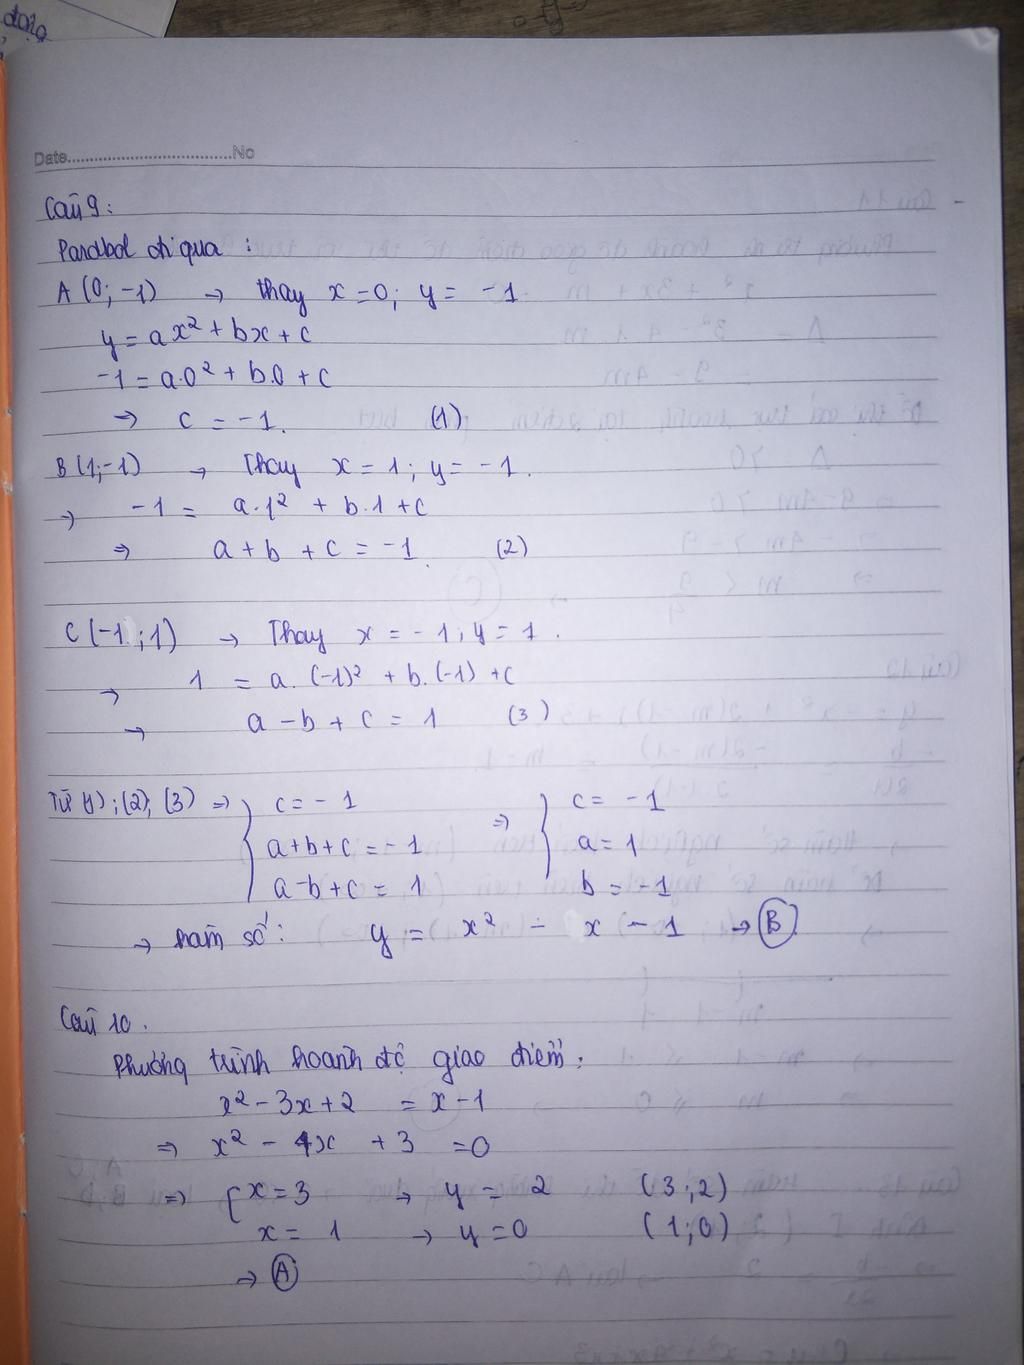 động
Date.................................No
Câu 9:
Parabol đi qua :
A (0; -1) → thay x = 0; y = -1
y = ax² + bx + c
-1 = a.0² + b.0 + c
→ c = -1. (1)
B (1;-1) → Thay x = 1; y = -1.
→ -1 = a.1² + b.1 + c
⇒ a + b + c = -1. (2)
C (-1 ; 1) → Thay x = -1; y = 1.
→ 1 = a. (-1)² + b. (-1) + c
→ a - b + c = 1 (3)
Từ (1); (2); (3) ⇒ { c = -1 ⇒ { c = -1
a+b+c = -1 a = 1
a-b+c = 1 b = -1
→ hàm số: y = x² - x - 1 → B.
Câu 10.
Phương trình hoành độ giao điểm:
x² - 3x + 2 = x - 1
⇒ x² - 4x + 3 = 0
⇒ { x = 3 → y = 2 (3;2)
x = 1 → y = 0 (1;0)
→ A